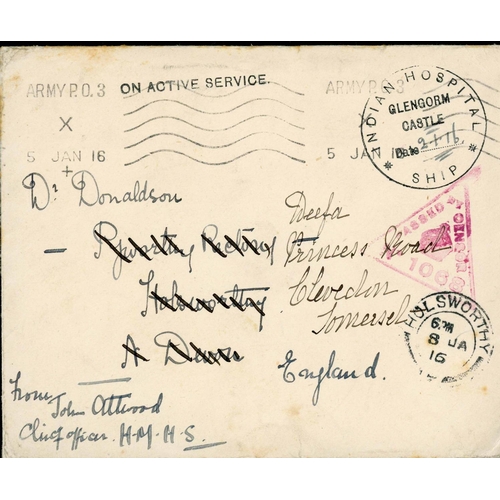 ARMY P.O. 3 ON ACTIVE SERVICE. ARMY P.O. 3
X
5 JAN 16 5 JAN 16
+
INDIAN HOSPITAL
GLENGORM
CASTLE
Date 2.1.16
* SHIP *
PASSED BY CENSOR
1068
Dr Donaldson
Rectory
Holsworthy
N. Devon
Deefa
Princess Road
Clevedon
Somerset
England.
HOLSWORTHY
6 PM
8 JA
16
From John Attwood
Chief officer H.M.H.S.